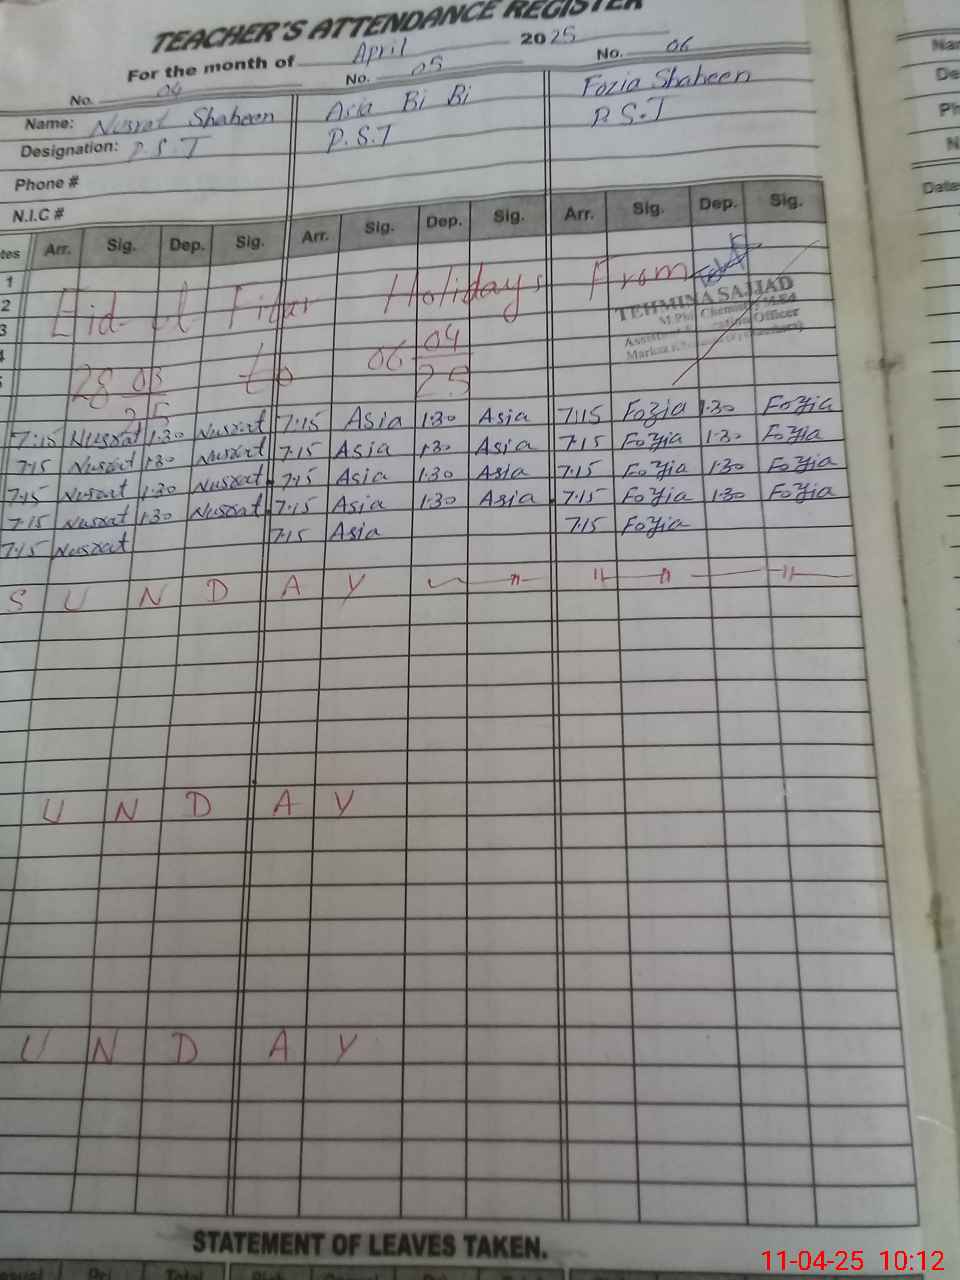 TEACHER'S ATTENDANCE REGISTER
For the month of April 2025
No. 04 No. 05 No. 06
Name: Nusrat Shaheen Asia Bi Bi Fozia Shaheen
Designation: P.S.T P.S.T P.S.T
Phone #
N.I.C #
tes Arr. Sig. Dep. Sig. Arr. Sig. Dep. Sig. Arr. Sig. Dep. Sig.
1
2 Eid-ul Fitar Holidays From
3
TEHMINA SAJJAD
M.Phil Chem
Officer
28 03 25 to 06 04 25
7:15 Nusrat 1:30 Nusrat 7:15 Asia 1:30 Asia 7:15 Fozia 1:30 Fozia
7:15 Nusrat 1:30 Nusrat 7:15 Asia 1:30 Asia 7:15 Fozia 1:30 Fozia
7:15 Nusrat 1:30 Nusrat 7:15 Asia 1:30 Asia 7:15 Fozia 1:30 Fozia
7:15 Nusrat 1:30 Nusrat 7:15 Asia 1:30 Asia 7:15 Fozia 1:30 Fozia
7:15 Nusrat 7:15 Asia 7:15 Fozia
S U N D A Y
U N D A Y
U N D A Y
STATEMENT OF LEAVES TAKEN.
11-04-25 10:12